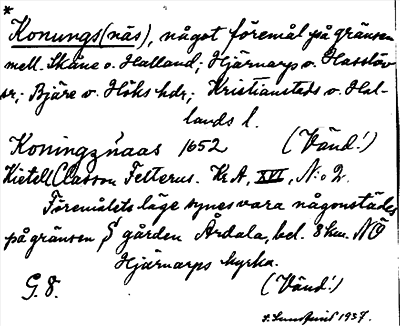 *
Konungs(näs), något föremål på gränsen
mell. Skåne o. Halland; Hjärnarp o. Hasslöv
sr; Bjäre o. Höks hdr; Kristianstads o. Hal-
lands l.
Koningznaas 1652 (Vänd!)
Kietell Classon Felterus. KrA, XVI, N:o 2.
Föremålets läge synes vara någonstädes
på gränsen § gården Årdala, bel. 8 km. NÖ
Hjärnarps kyrka.
G. 8. (Vänd!)
S. Lundquist 1937.